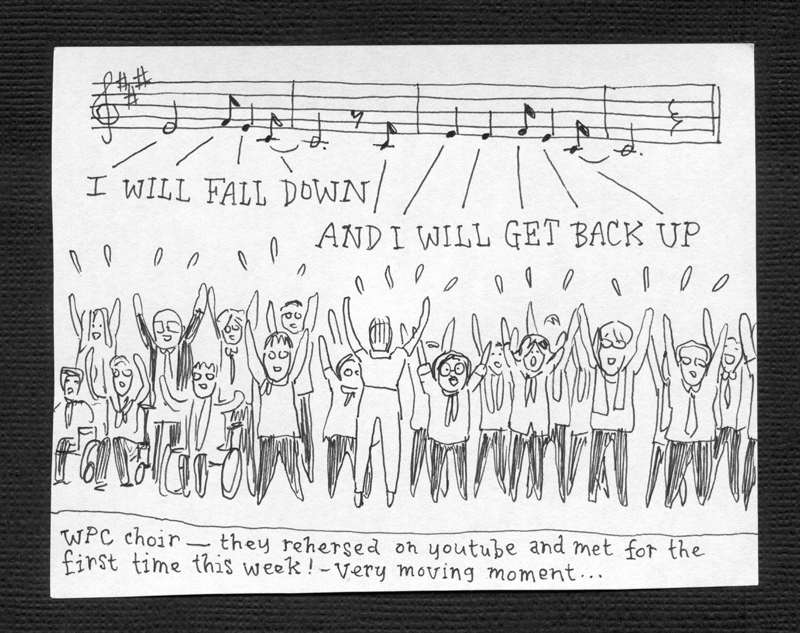 I WILL FALL DOWN
AND I WILL GET BACK UP
WPC choir — they rehersed on youtube and met for the
first time this week! - Very moving moment...